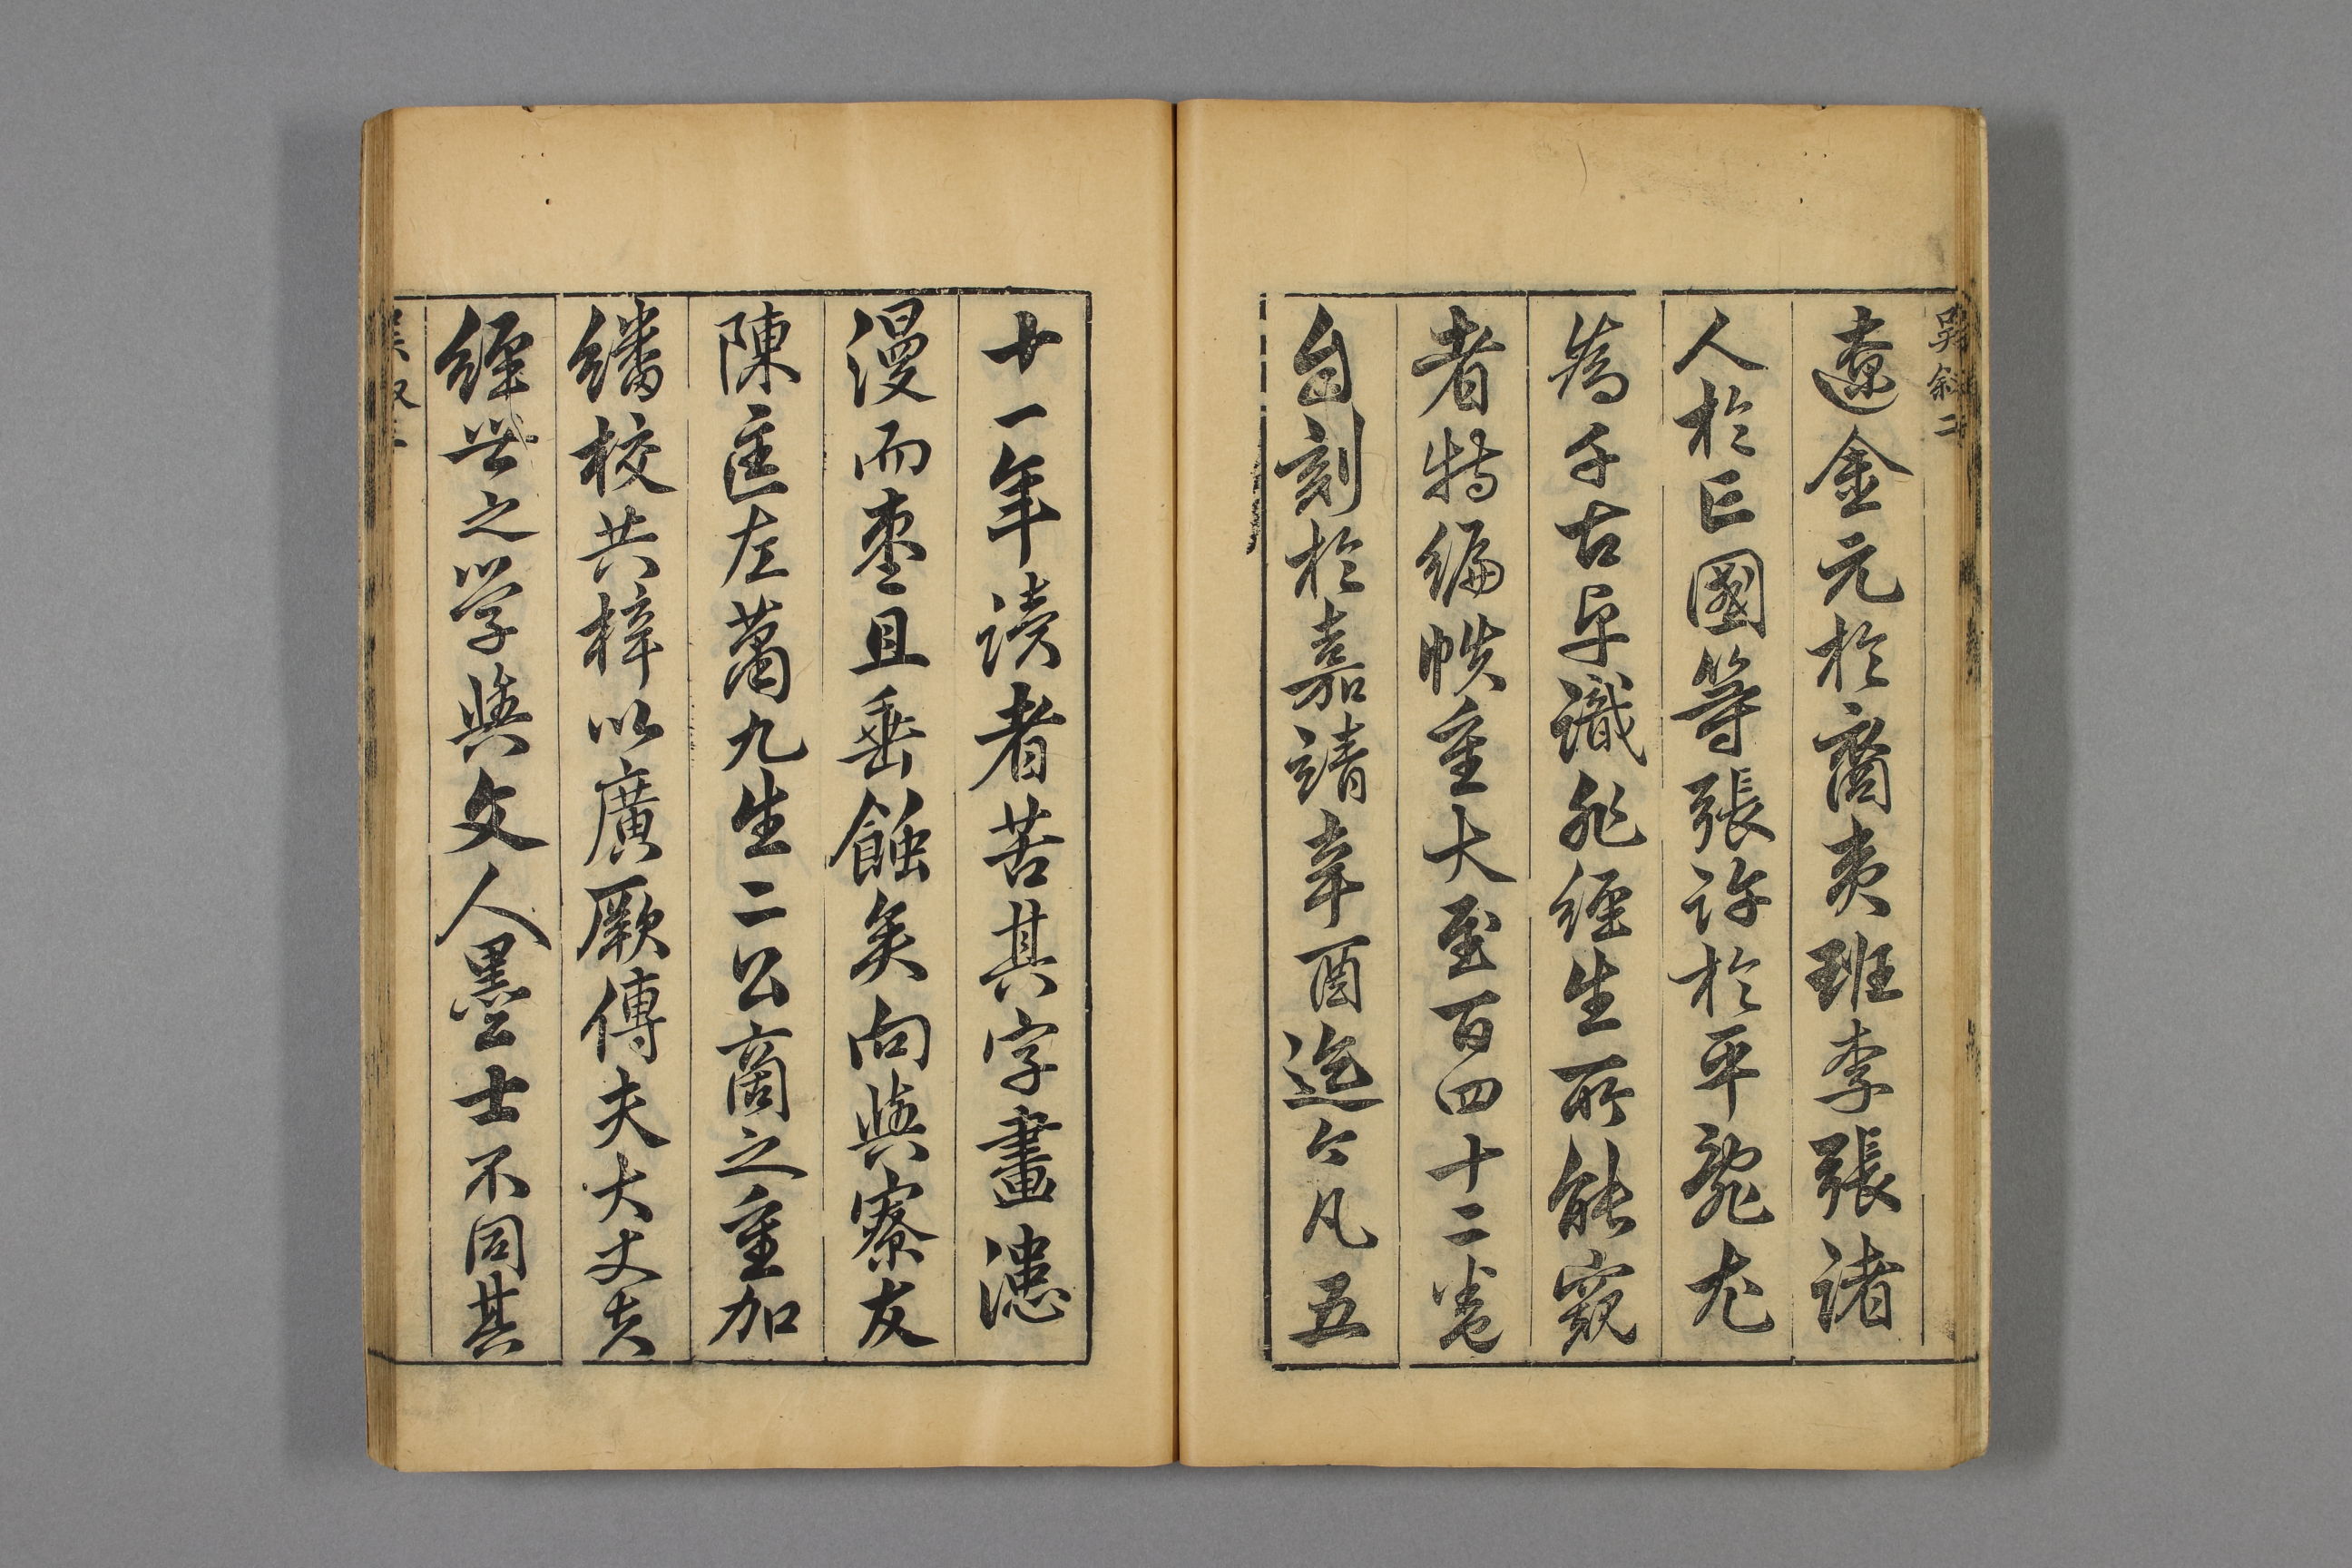 吳敘二
遼金元於裔夷班李張諸
人於亡國等張許於平龍尤
為千古卓識非經生所能窺
者特編帙重大至百四十二卷
自刻於嘉靖辛酉迄今凡五
十一年讀者苦其字畫漶
漫而棗且垂蝕矣向與寮友
陳匡左蕭九生二公商之重加
繙校共梓以廣厥傳夫大丈夫
經世之學與文人墨士不同其